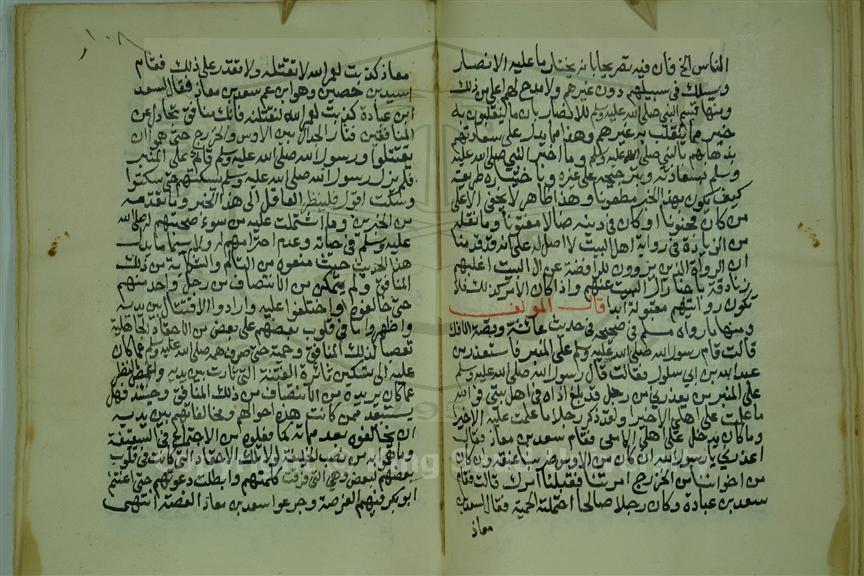 الناس الخ فان فيه تصريحا بانه يختار ما عليه الانصار
ويسلك في سبيلهم دون غيرهم ولا مدح لهم اعلى من ذلك
ومنها قسم النبي صلى الله عليه وسلم للانصار بان ما ينقلبون به
خير مما ينقلب به غيرهم وهذا مما يدل على سعادتهم
بذهابهم بالنبي صلى الله عليه وسلم وما اخبر النبي صلى الله عليه
وسلم بسعادته وبترجيحه على غيره وباختياره طريقه
كيف يكون بهذا الخبر مطعونا وهذا ظاهر لا يخفى الا على
من كان مجنونا او كان في دينه ضالا مفتونا وما نقله
من الزيادة في رواية اهل البيت لا اصل له على انه قد قدمنا
ان الرواة الذين يروون للرافضة عن ال البيت اغلبهم
زنادقة باخبار ال البيت عنهم واذا كان الامر كذلك فلا
تكون روايتهم مقبولة ابدا قال المؤلف
ومنها ما رواه مسلم في صحيحه في حديث عائشة وقصة الافك
قالت قام رسول الله صلى الله عليه وسلم على المنبر فاستعذر من
عبد الله بن ابي سلول فقالت قال رسول الله صلى الله عليه وسلم
على المنبر من يعذرني من رجل قد بلغ اذاه في اهل بيتي فوالله
ما علمت على اهلي الا خيرا ولقد ذكر رجلا ما علمت عليه الا خيرا
وما كان يدخل على اهلي الا معي فقام سعد بن معاذ فقال
اعذرك يا رسول الله ان كان من الاوس ضربنا عنقه وان كان
من اخواننا من الخزرج امرتنا ففعلنا امرك قالت فقام
سعد بن عبادة وكان رجلا صالحا احتملته الحمية فقال لسعد بن
معاذ
١٠٨
معاذ كذبت لعمر الله لا تقتله ولا تقدر على ذلك فقام
اسيد بن حضير وهو ابن عم سعد بن معاذ فقال لسعد
ابن عبادة كذبت لعمر الله لنقتلنه فانك منافق تجادل عن
المنافقين فثار الجدال بين الاوس والخزرج حتى هموا ان
يقتتلوا ورسول الله صلى الله عليه وسلم قائم على المنبر
فلم يزل رسول الله صلى الله عليه وسلم يسكتهم حتى سكتوا
وسكت اقول فلينظر العاقل الى هذا الخبر وما تقدمه
من الخبرين وما اشتملت عليه من سوء صحبتهم له صلى الله
عليه وسلم في حياته وعدم احترامهم له ولا سيما
هذا الحديث حيث منعوه من التالم والشكاية من ذلك
المنافق ولم يتمكن من الانتصاف من رجل واحد منهم
حتى خالفوه واختلفوا عليه وارادوا الاقتتال بين يديه
واظهروا ما في قلوب بعضهم على بعض من الاحقاد الجاهلية
تعصبا لذلك المنافق وحمية حتى صرفهم صلى الله عليه وسلم عما كان
عليه الى تسكين نائرة الفتنة التي ثارت بين يديه واغمض النظر
عما كان يريده من الانتصاف من ذلك المنافق وحينئذ فهل
يستبعد ممن كانت هذه احوالهم ومخالفاتهم بين يديه
ان يخالفوه بعد مماته كما فعلوه من الاجتماع في السقيفة
وما هموا به من نصب الخليفة ولا تلك الاحقاد التي كانت في قلوب
بعضهم لبعض وهي التي فرقت كلمتهم وابطلت دعوتهم حتى اغتنم
ابو بكر فيهم الفرصة وجرعوا سعد بن معاذ الغصة انتهى